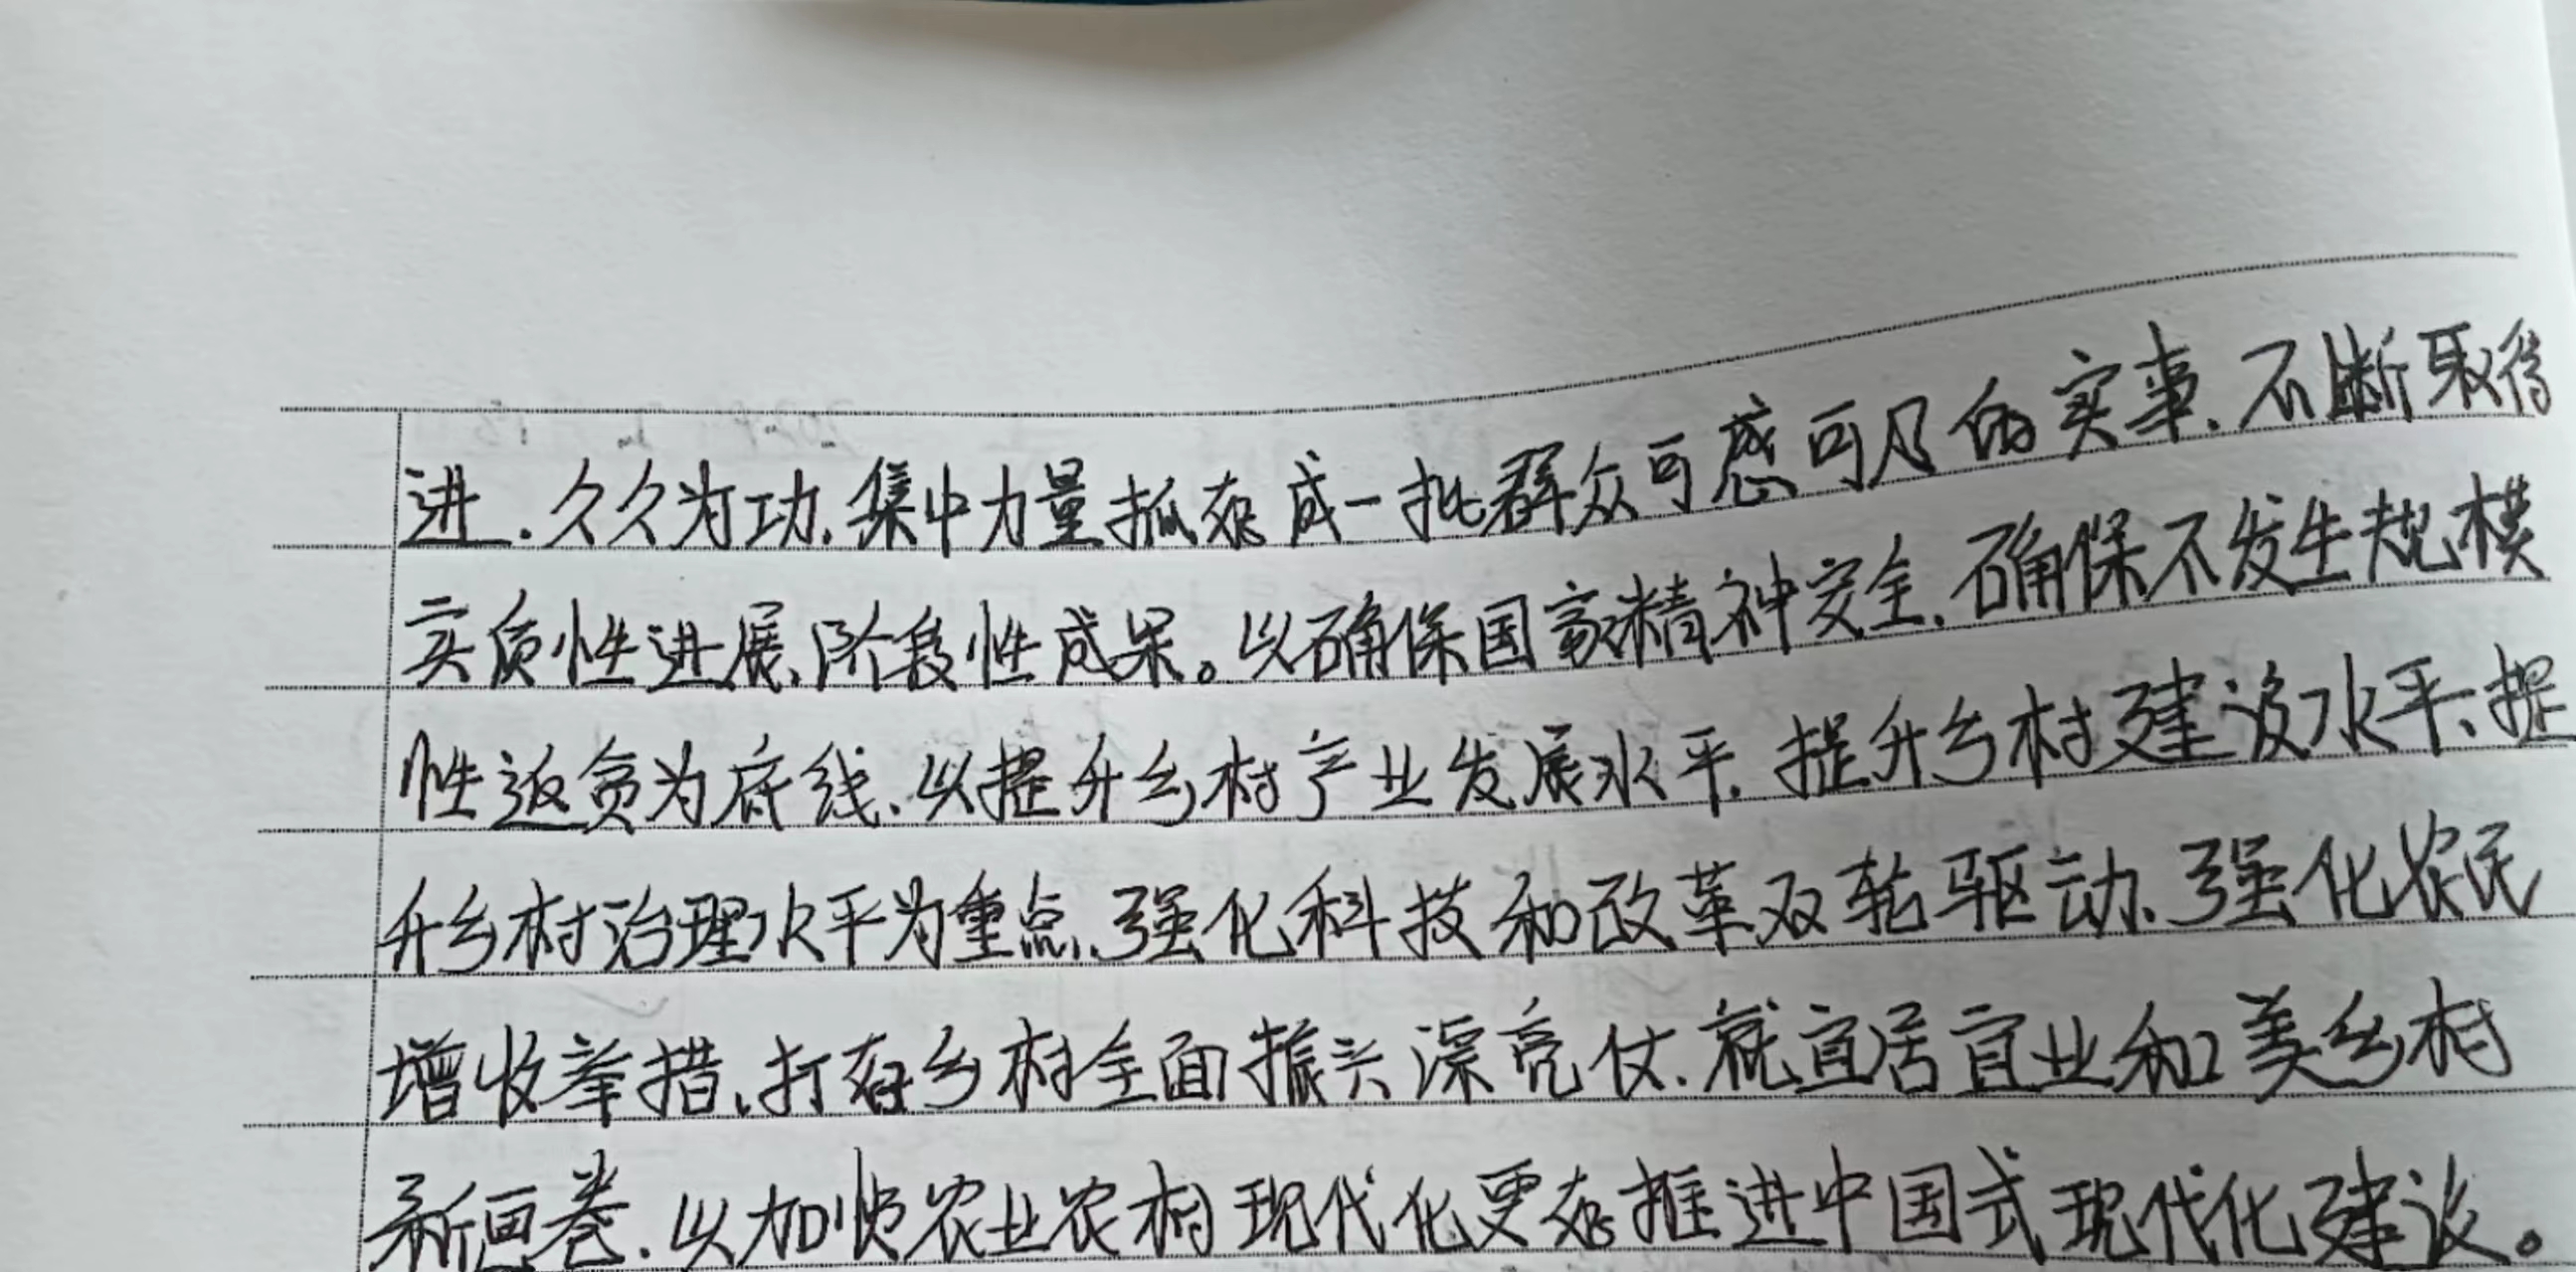 进,久久为功,集中力量抓办成一批群众可感可及的实事,不断取得
实质性进展、阶段性成果。以确保国家精神安全,确保不发生规模
性返贫为底线,以提升乡村产业发展水平,提升乡村建设水平、提
升乡村治理水平为重点,强化科技和改革双轮驱动,强化农民
增收举措,打好乡村全面振兴漂亮仗,就宜居宜业和美乡村
新画卷,以加快农业农村现代化更好推进中国式现代化建设。